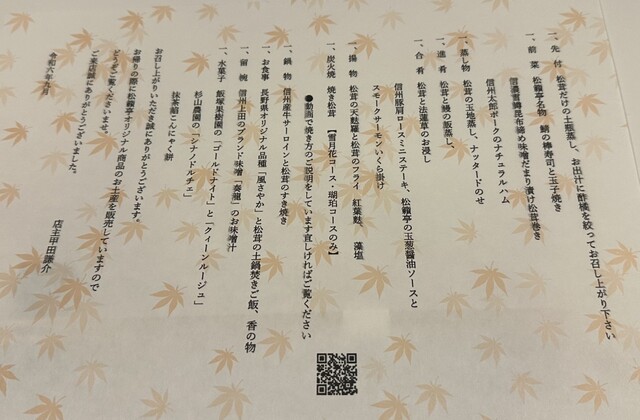 一、先付　松茸だけの土瓶蒸し、お出汁に酢橘を絞ってお召し上がり下さい
一、前菜　松籟亭名物　鯖の棒寿司と玉子焼き
信濃雪鱒昆布締め味噌だまり漬け松茸巻き
信州太郎ポークのナチュラルハム
一、蒸し物　松茸の玉地蒸し、ナッタードのせ
一、進肴　松茸と鰻の飯蒸し、
一、合肴　松茸と法蓮草のお浸し
信州豚肩ロースミニステーキ、松籟亭の玉葱醤油ソースと
スモークサーモンいくら掛け
一、揚物　松茸の天麩羅と松茸のフライ　紅葉麩、藻塩
一、炭火焼　焼き松茸　【雪月花コース・瑚珀コースのみ】
●動画で焼き方のご説明をしています宜しければご覧ください
一、鍋物　信州産牛サーロインと松茸のすき焼き
一、お食事　長野県オリジナル品種「風さやか」と松茸の土鍋焚きご飯、香の物
一、留椀　信州上田のブランド味噌「奏龍」のお味噌汁
一、水菓子　飯塚果樹園の「ゴールドナイト」と「クィーンルージュ」
杉山農園の「シナノドルチェ」
抹茶餡こんにゃく餅
お召し上がりいただき誠にありがとうございます。
お帰りの際に松籟亭オリジナル商品のお土産を販売していますので
どうぞご覧くださいませ。
ご来店誠にありがとうございました。
令和六年九月
店主甲田謙介